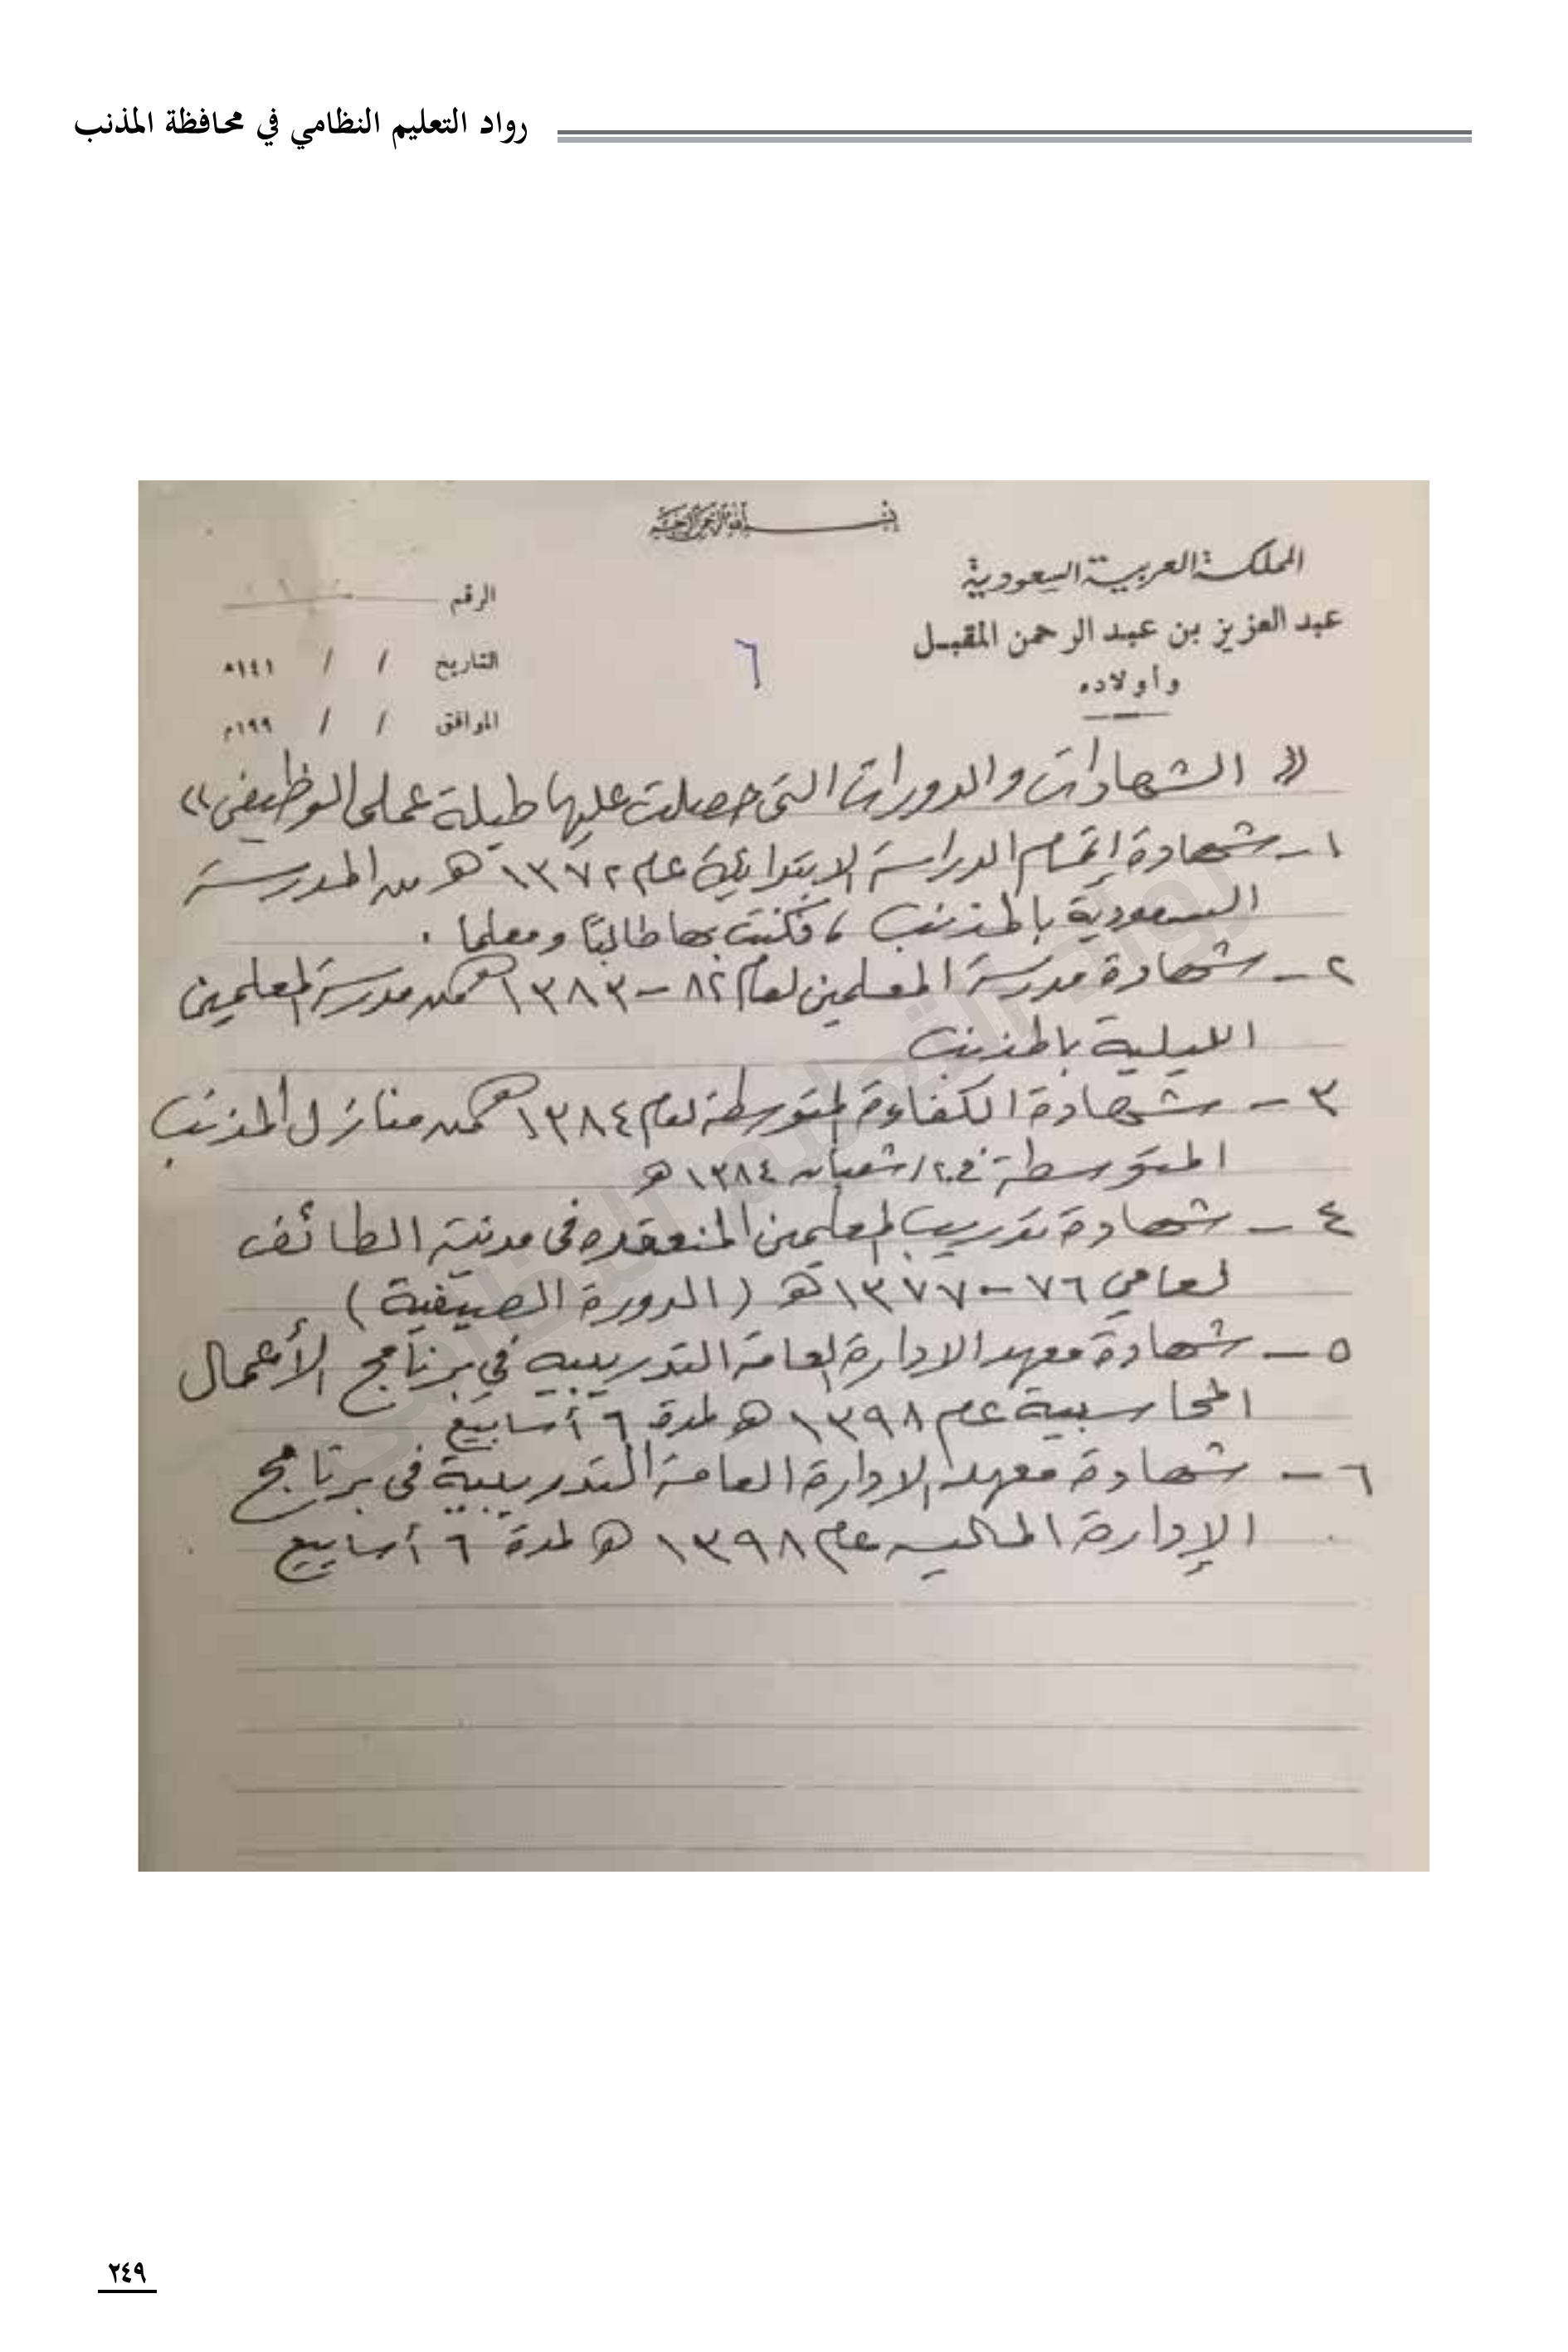 رواد التعليم النظامي في محافظة المذنب
بسم الله الرحمن الرحيم
المملكة العربية السعودية
عبد العزيز بن عبد الرحمن المقبل
وأولاده
الرقم
التاريخ / / ١٤١هـ
الموافق / / ١٩٩م
٦
« الشهادات والدورات التي حصلت عليها طيلة عملي الوظيفي »
١ - شهادة إتمام الدراسة الابتدائية عام ١٣٧٢هـ من المدرسة
السعودية بالمذنب ، فكنت بها طالبًا ومعلما .
٢ - شهادة مدرسة المعلمين لعام ٨٢ - ١٣٨٣هـ من مدرسة المعلمين
الليلية بالمذنب
٣ - شهادة الكفاءة المتوسطة لعام ١٣٨٤هـ من منازل المذنب
المتوسطة في ٢٠/شعبان ١٣٨٤هـ
٤ - شهادة تدريب المعلمين المنعقده في مدينة الطائف
لعامي ٧٦ - ١٣٧٧هـ ( الدورة الصيفية )
٥ - شهادة معهد الادارة العامة التدريبيه في برنامج الأعمال
المحاسبية عام ١٣٩٨هـ لمدة ٦ أسابيع
٦ - شهادة معهد الادارة العامة التدريبية في برنامج
الإدارة الماليه عام ١٣٩٨هـ لمدة ٦ أسابيع
٢٤٩